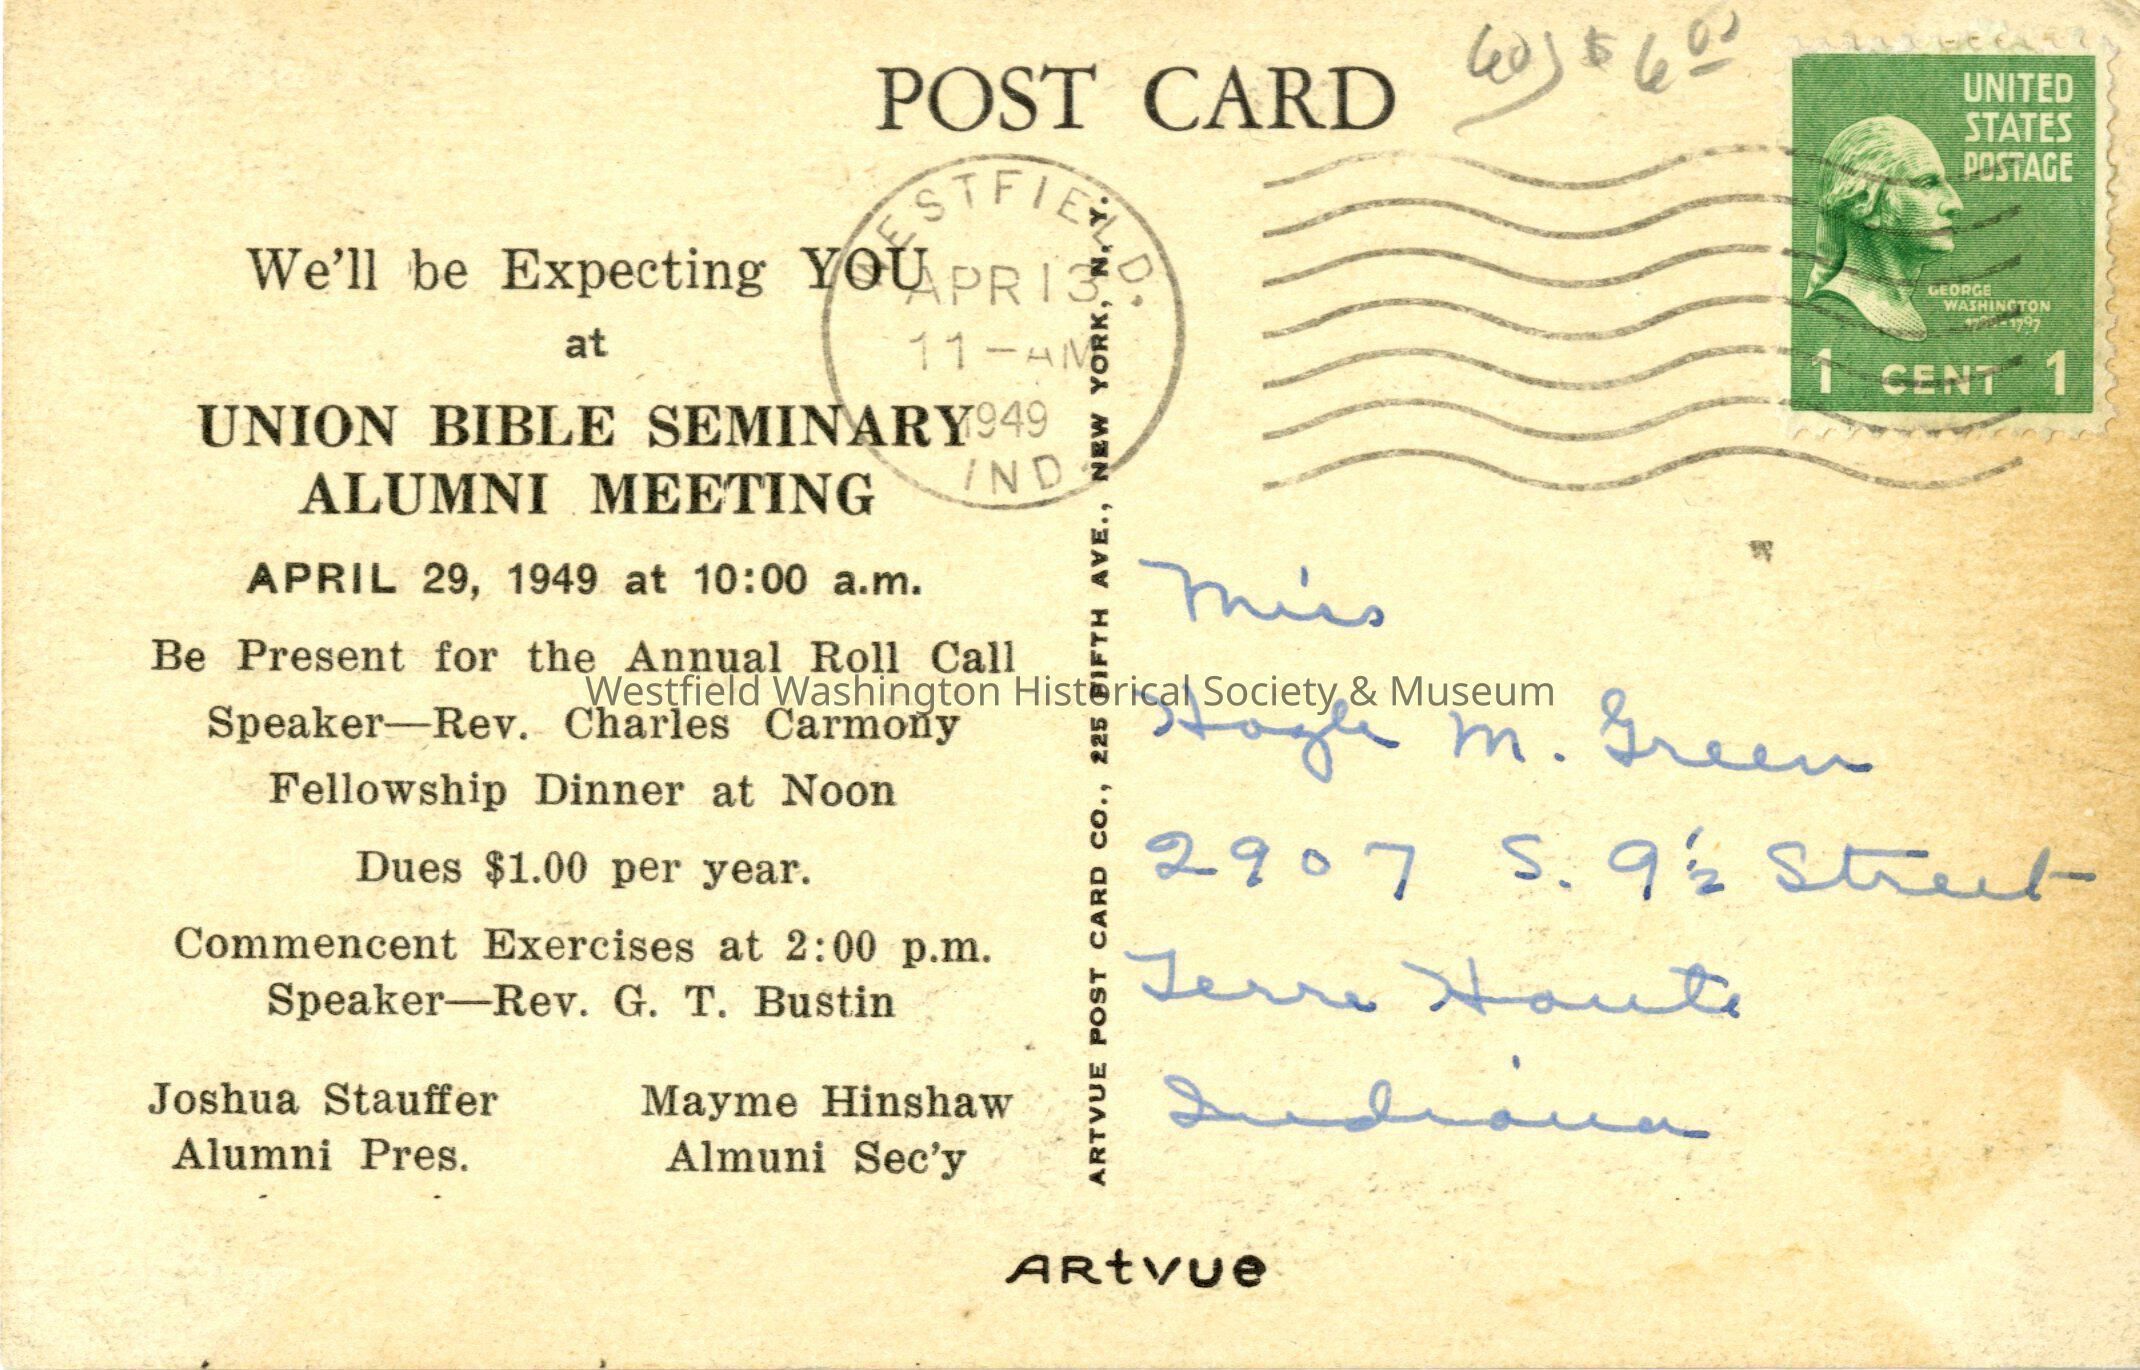 POST CARD
60) $ 6 00
UNITED
STATES
POSTAGE
GEORGE
WASHINGTON
1732-1797
1 CENT 1
WESTFIELD.
APR 13
11-AM
1949
IND.
We'll be Expecting YOU
at
UNION BIBLE SEMINARY
ALUMNI MEETING
APRIL 29, 1949 at 10:00 a.m.
Be Present for the Annual Roll Call
Speaker—Rev. Charles Carmony
Fellowship Dinner at Noon
Dues $1.00 per year.
Commencent Exercises at 2:00 p.m.
Speaker—Rev. G. T. Bustin
Joshua Stauffer
Alumni Pres.
Mayme Hinshaw
Almuni Sec'y
ARTVUE POST CARD CO., 225 FIFTH AVE., NEW YORK, N.Y.
Miss
Hogle M. Green
2907 S. 9½ Street
Terre Haute
Indiana
Westfield Washington Historical Society & Museum
ARtvue